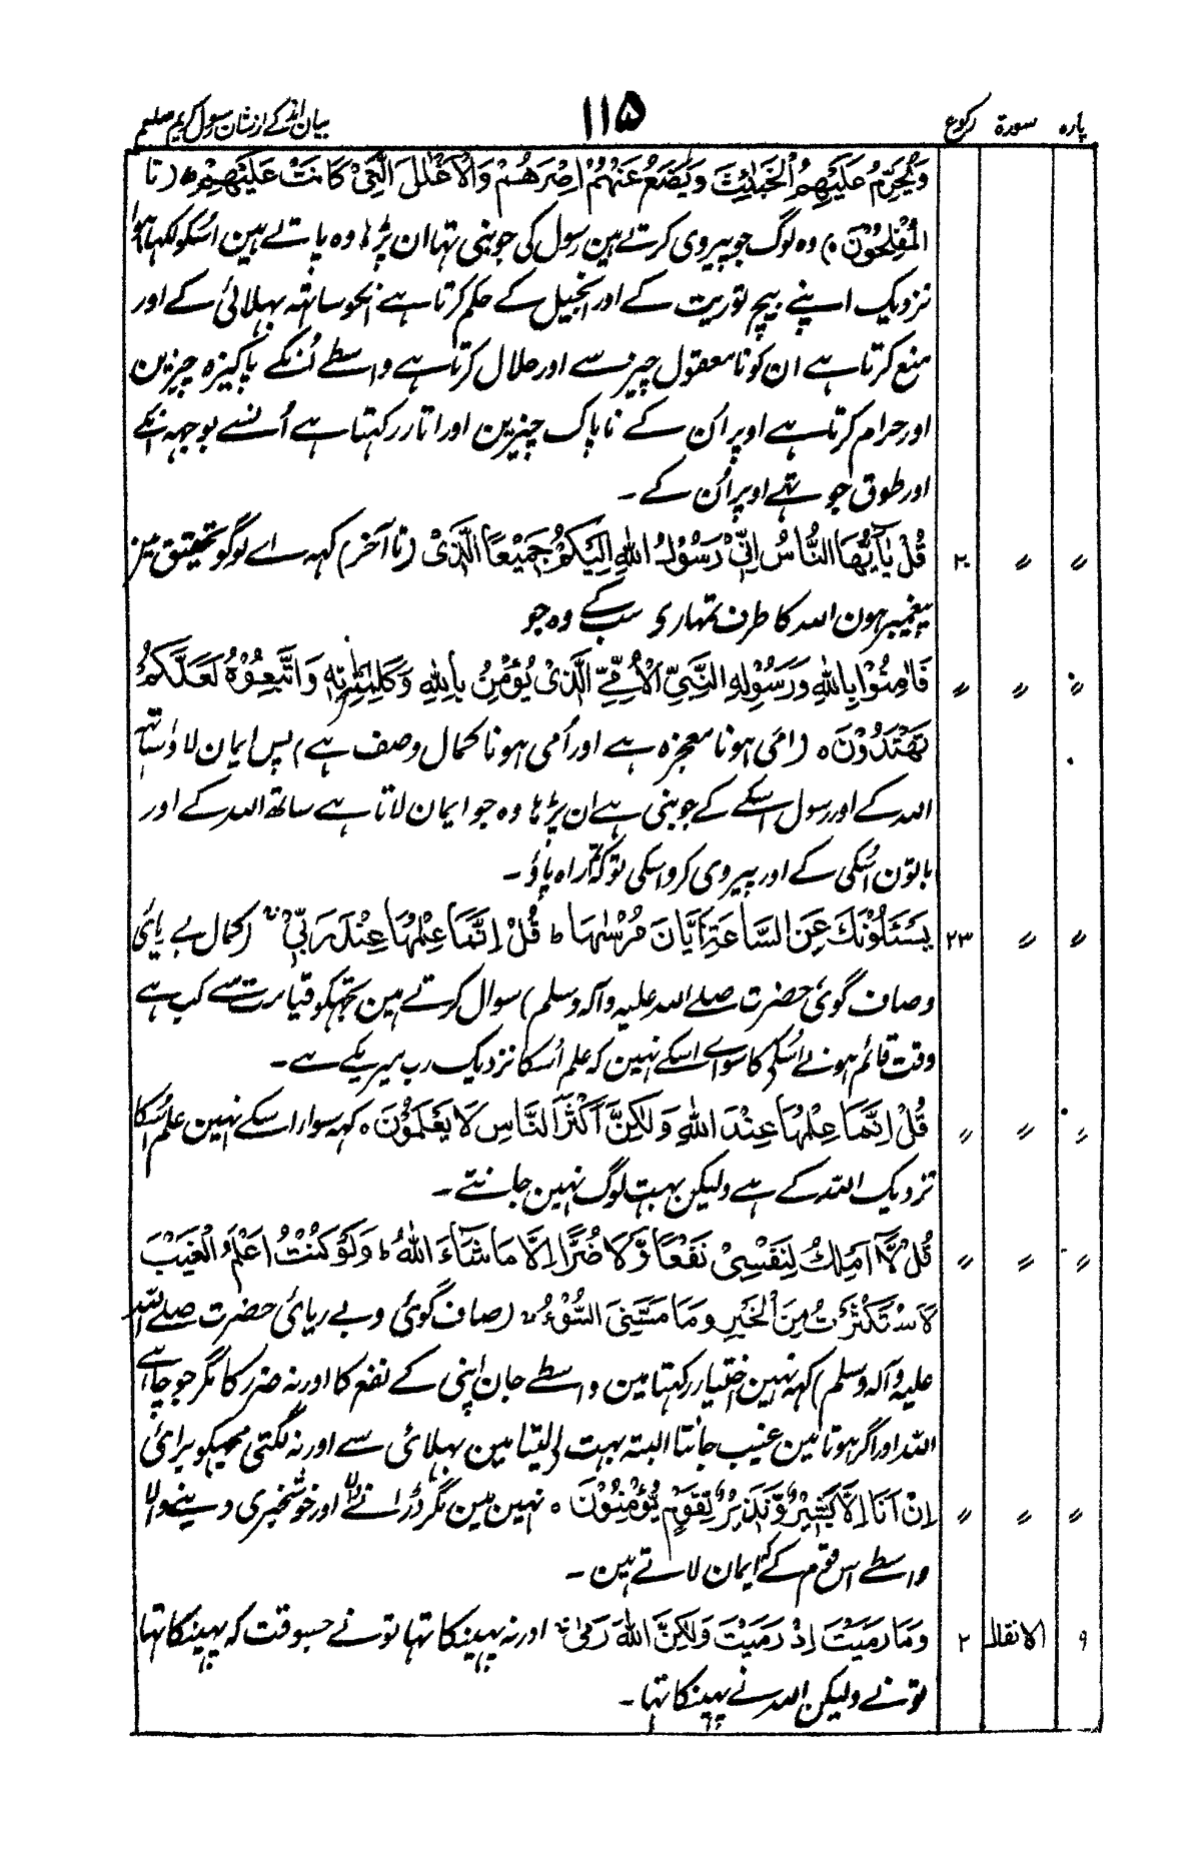 پارہ سورۃ رکوع ۱۱۵ بیان انکے از شان رسول کریم صلعم
وَيُحَرِّمُ عَلَيْهِمُ الْخَبَائِثَ وَيَضَعُ عَنْهُمْ اِصْرَهُمْ وَالْاَغْلٰلَ الَّتِیْ كَانَتْ عَلَيْهِمْ ؕ (تا
الْمُفْلِحُوْنَ ۰) وہ لوگ جو پیروی کرتے ہین رسول کی جو نبی تہا ان پڑہا وہ پاتے ہین اُسکو لکہا ہوا
نزدیک اپنے بیچ توریت کے اور انجیل کے حکم کرتا ہے انکو ساتہہ بہلائی کے اور
منع کرتا ہے ان کو نامعقول چیز سے اور حلال کرتا ہے واسطے اُنکے پاکیزہ چیزین
اور حرام کرتا ہے اوپر اُن کے ناپاک چیزین اور اتار رکہتا ہے اُنسے بوجہہ انکے
اور طوق جو تہے اوپر اُن کے ۔
〃 〃 ۲۰ قُلْ يٰٓاَيُّهَا النَّاسُ اِنِّیْ رَسُوْلُ اللهِ اِلَيْكُمْ جَمِيْعًا الَّذِیْ (تا آخر) کہہ اے لوگو تحقیق مین
پیغمبر ہون اللہ کا طرف تمہاری سب کے وہ جو
〃 〃 〃 فَاٰمِنُوْا بِاللهِ وَرَسُوْلِهِ النَّبِیِّ الْاُمِّیِّ الَّذِیْ يُؤْمِنُ بِاللهِ وَكَلِمٰتِهٖ وَاتَّبِعُوْهُ لَعَلَّكُمْ
تَهْتَدُوْنَ ۰ (امی ہونا معجزہ ہے اور اُمی ہونا کمال وصف ہے) پس ایمان لاؤ ساتہہ
اللہ کے اور رسول اسکے کے جو نبی ہے ان پڑہا وہ جو ایمان لاتا ہے ساتھ اللہ کے اور
باتون اُسکی کے اور پیروی کرو اسکی تو کہ تم راہ پاؤ ۔
〃 〃 ۲۳ يَسْئَلُوْنَكَ عَنِ السَّاعَةِ اَيَّانَ مُرْسٰهَا ط قُلْ اِنَّمَا عِلْمُهَا عِنْدَ رَبِّیْ (کمال بے یائی
و صاف گوئی حضرت صلے اللہ علیہ وآلہ وسلم) سوال کرتے ہین تجہکو قیامت سے کب ہے
وقت قائم ہونے اُسکے کا سواے اسکے نہین کہ علم اُسکا نزدیک رب میریکے ہے ۔
〃 〃 〃 قُلْ اِنَّمَا عِلْمُهَا عِنْدَ اللهِ وَلٰكِنَّ اَكْثَرَ النَّاسِ لَا يَعْلَمُوْنَ ۰ کہہ سواے اسکے نہین علم اُسکا
نزدیک اللہ کے ہے ولیکن بہت لوگ نہین جانتے ۔
〃 〃 〃 قُلْ لَّاۤ اَمْلِكُ لِنَفْسِیْ نَفْعًا وَّلَا ضَرًّا اِلَّا مَا شَآءَ اللهُ ط وَلَوْ كُنْتُ اَعْلَمُ الْغَيْبَ
لَاسْتَكْثَرْتُ مِنَ الْخَيْرِ وَمَا مَسَّنِیَ السُّوْٓءُ (صاف گوئی و بے ریائی حضرت صلے اللہ
علیہ وآلہ وسلم) کہہ نہین اختیار رکہتا مین واسطے جان اپنی کے نفع کا اور نہ ضرر کا مگر جو چاہے
اللہ اور اگر ہوتا مین غیب جانتا البتہ بہت لیتا مین بہلائی سے اور نہ لگتی مجہکو برائی
〃 〃 〃 اِنْ اَنَا اِلَّا بَشِيْرٌ وَّنَذِيْرٌ لِّقَوْمٍ يُّؤْمِنُوْنَ ۰ نہین مین مگر ڈرانے والا اور خوشخبری دینے والا
واسطے اس قوم کے کہ ایمان لاتے ہین ۔
۹ الانفال ۲ وَمَا رَمَيْتَ اِذْ رَمَيْتَ وَلٰكِنَّ اللهَ رَمٰی اور نہ پہینکا تہا تو نے جسوقت کہ پہینکا تہا
تو نے ولیکن اللہ نے پہینکا تہا ۔